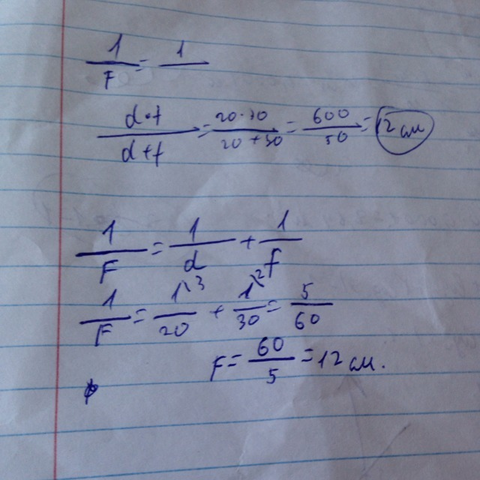 1/F = 1/
d•f/d+f = 20·30/20+30 = 600/50 = 12 см
1/F = 1/d + 1/f
1/F = 1\3/20 + 1\2/30 = 5/60
F = 60/5 = 12 см.